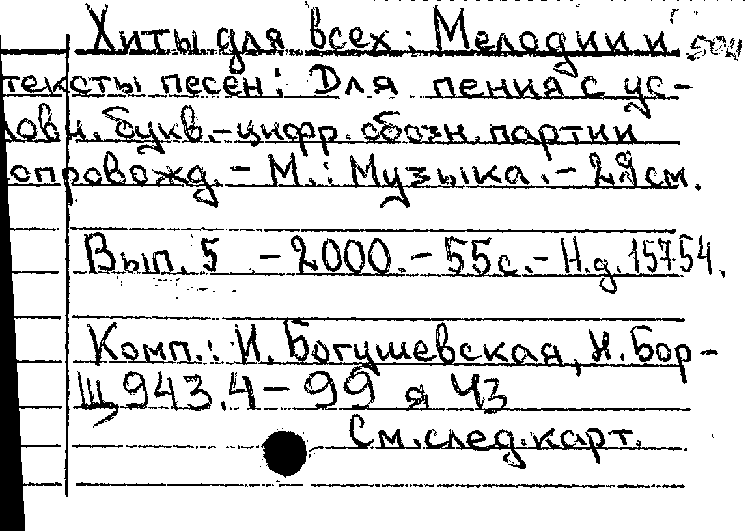 Хиты для всех: Мелодии и 504
тексты песен: Для пения с ус-
ловн. букв.-цифр. обозн. партии
опровожд. - М.: Музыка. - 29 см.
Вып. 5 - 2000. - 55 с. - Н.д. 15754.
Комп.: И. Богушевская, Н. Бор-
Щ 943.4-99 я 43
См. след. карт.